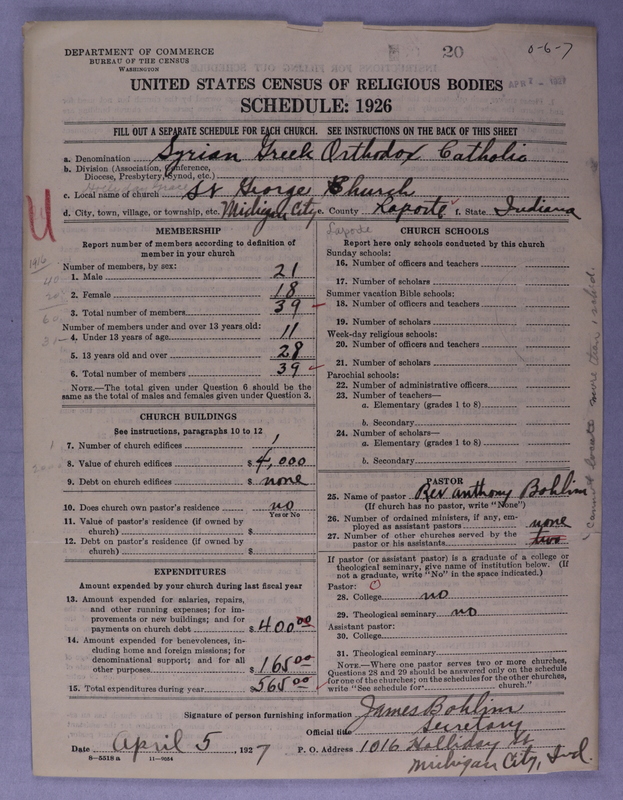 DEPARTMENT OF COMMERCE
BUREAU OF THE CENSUS
WASHINGTON
20
0-6-7
UNITED STATES CENSUS OF RELIGIOUS BODIES
SCHEDULE: 1926
FILL OUT A SEPARATE SCHEDULE FOR EACH CHURCH. SEE INSTRUCTIONS ON THE BACK OF THIS SHEET
a. Denomination Syrian Greek Orthodox Catholic
b. Division (Association, Conference, Diocese, Presbytery, Synod, etc.)
c. Local name of church St George Church
d. City, town, village, or township, etc. Michigan City e. County Laporte f. State Indiana
MEMBERSHIP
Report number of members according to definition of member in your church
Number of members, by sex:
1916
1. Male 21
2. Female 18
3. Total number of members 39
Number of members under and over 13 years old:
4. Under 13 years of age 11
5. 13 years old and over 28
6. Total number of members 39
NOTE.—The total given under Question 6 should be the same as the total of males and females given under Question 3.
CHURCH BUILDINGS
See instructions, paragraphs 10 to 12
7. Number of church edifices 1
8. Value of church edifices $ 4,000
9. Debt on church edifices $ none
10. Does church own pastor's residence? no
Yes or No
11. Value of pastor's residence (if owned by church) $
12. Debt on pastor's residence (if owned by church) $
EXPENDITURES
Amount expended by your church during last fiscal year
13. Amount expended for salaries, repairs, and other running expenses; for improvements or new buildings; and for payments on church debt $ 400.00
14. Amount expended for benevolences, including home and foreign missions; for denominational support; and for all other purposes $ 165.00
15. Total expenditures during year $ 565.00
CHURCH SCHOOLS
Report here only schools conducted by this church
Sunday schools:
16. Number of officers and teachers
17. Number of scholars
Summer vacation Bible schools:
18. Number of officers and teachers
19. Number of scholars
Week-day religious schools:
20. Number of officers and teachers
21. Number of scholars
Parochial schools:
22. Number of administrative officers
23. Number of teachers—
a. Elementary (grades 1 to 8)
b. Secondary
24. Number of scholars—
a. Elementary (grades 1 to 8)
b. Secondary
cannot locate more than 1 sched.
PASTOR
25. Name of pastor Rev Anthony Bohlim
(If church has no pastor, write "None")
26. Number of ordained ministers, if any, employed as assistant pastors none
27. Number of other churches served by the pastor or his assistants two
If pastor (or assistant pastor) is a graduate of a college or theological seminary, give name of institution below. (If not a graduate, write "No" in the space indicated.)
Pastor:
28. College no
29. Theological seminary no
Assistant pastor:
30. College
31. Theological seminary
NOTE.—Where one pastor serves two or more churches, Questions 28 and 29 should be answered only on the schedule for one of the churches; on the schedules for the other churches, write "See schedule for church."
Signature of person furnishing information James Bohlim
Official title Secretary
Date April 5, 1927 P. O. Address 1016 Holliday St
Michigan City, Ind.
8—5518 a 11—9054